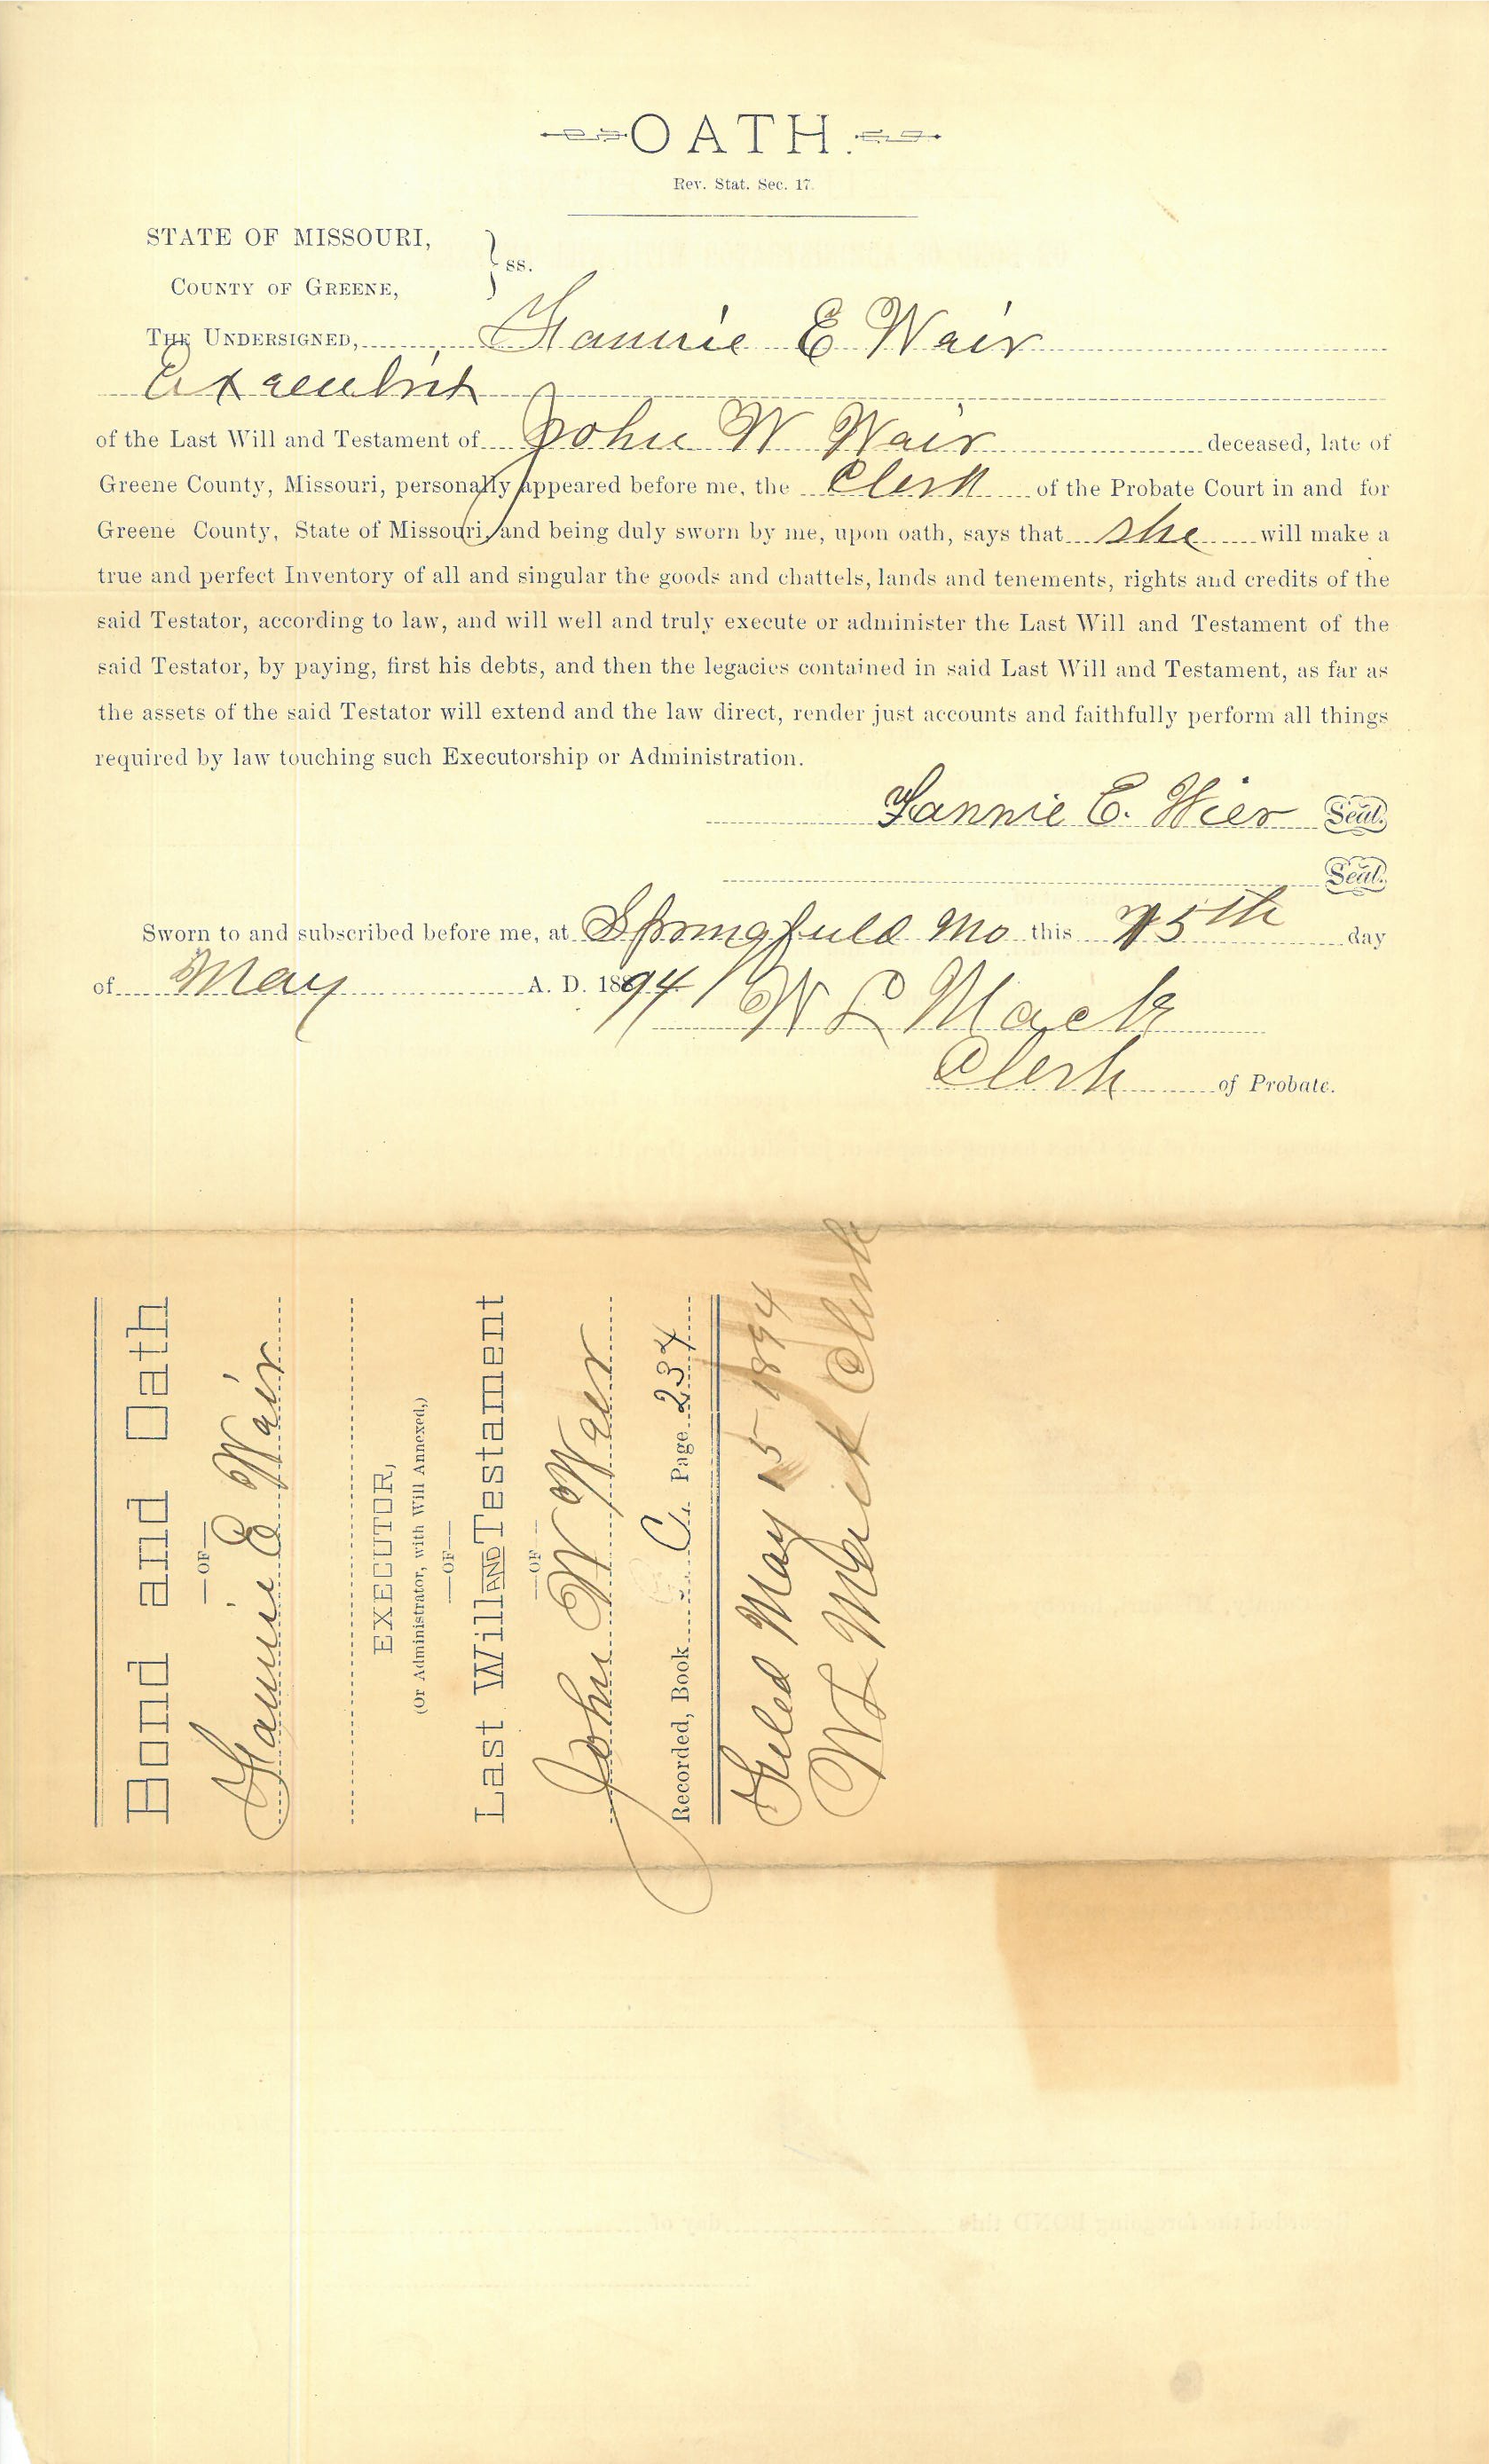 OATH.
Rev. Stat. Sec. 17.
STATE OF MISSOURI,
COUNTY OF GREENE, } ss.
THE UNDERSIGNED, Fannie E Wair
Executrix
of the Last Will and Testament of John W Wair deceased, late of
Greene County, Missouri, personally appeared before me, the Clerk of the Probate Court in and for
Greene County, State of Missouri, and being duly sworn by me, upon oath, says that she will make a
true and perfect Inventory of all and singular the goods and chattels, lands and tenements, rights and credits of the
said Testator, according to law, and will well and truly execute or administer the Last Will and Testament of the
said Testator, by paying, first his debts, and then the legacies contained in said Last Will and Testament, as far as
the assets of the said Testator will extend and the law direct, render just accounts and faithfully perform all things
required by law touching such Executorship or Administration.
Fannie E. Wier Seal.
Seal.
Sworn to and subscribed before me, at Springfield Mo this 15th day
of May A. D. 1894
W L Mack
Clerk of Probate.
Bond and Oath
—OF—
Fannie E Wair
EXECUTOR,
(Or Administrator, with Will Annexed,)
—OF—
Last Will AND Testament
—OF—
John W Wair
Recorded, Book C Page 234
Filed May 15 1894
W L Mack Clerk
Recorded the foregoing BOND this day of